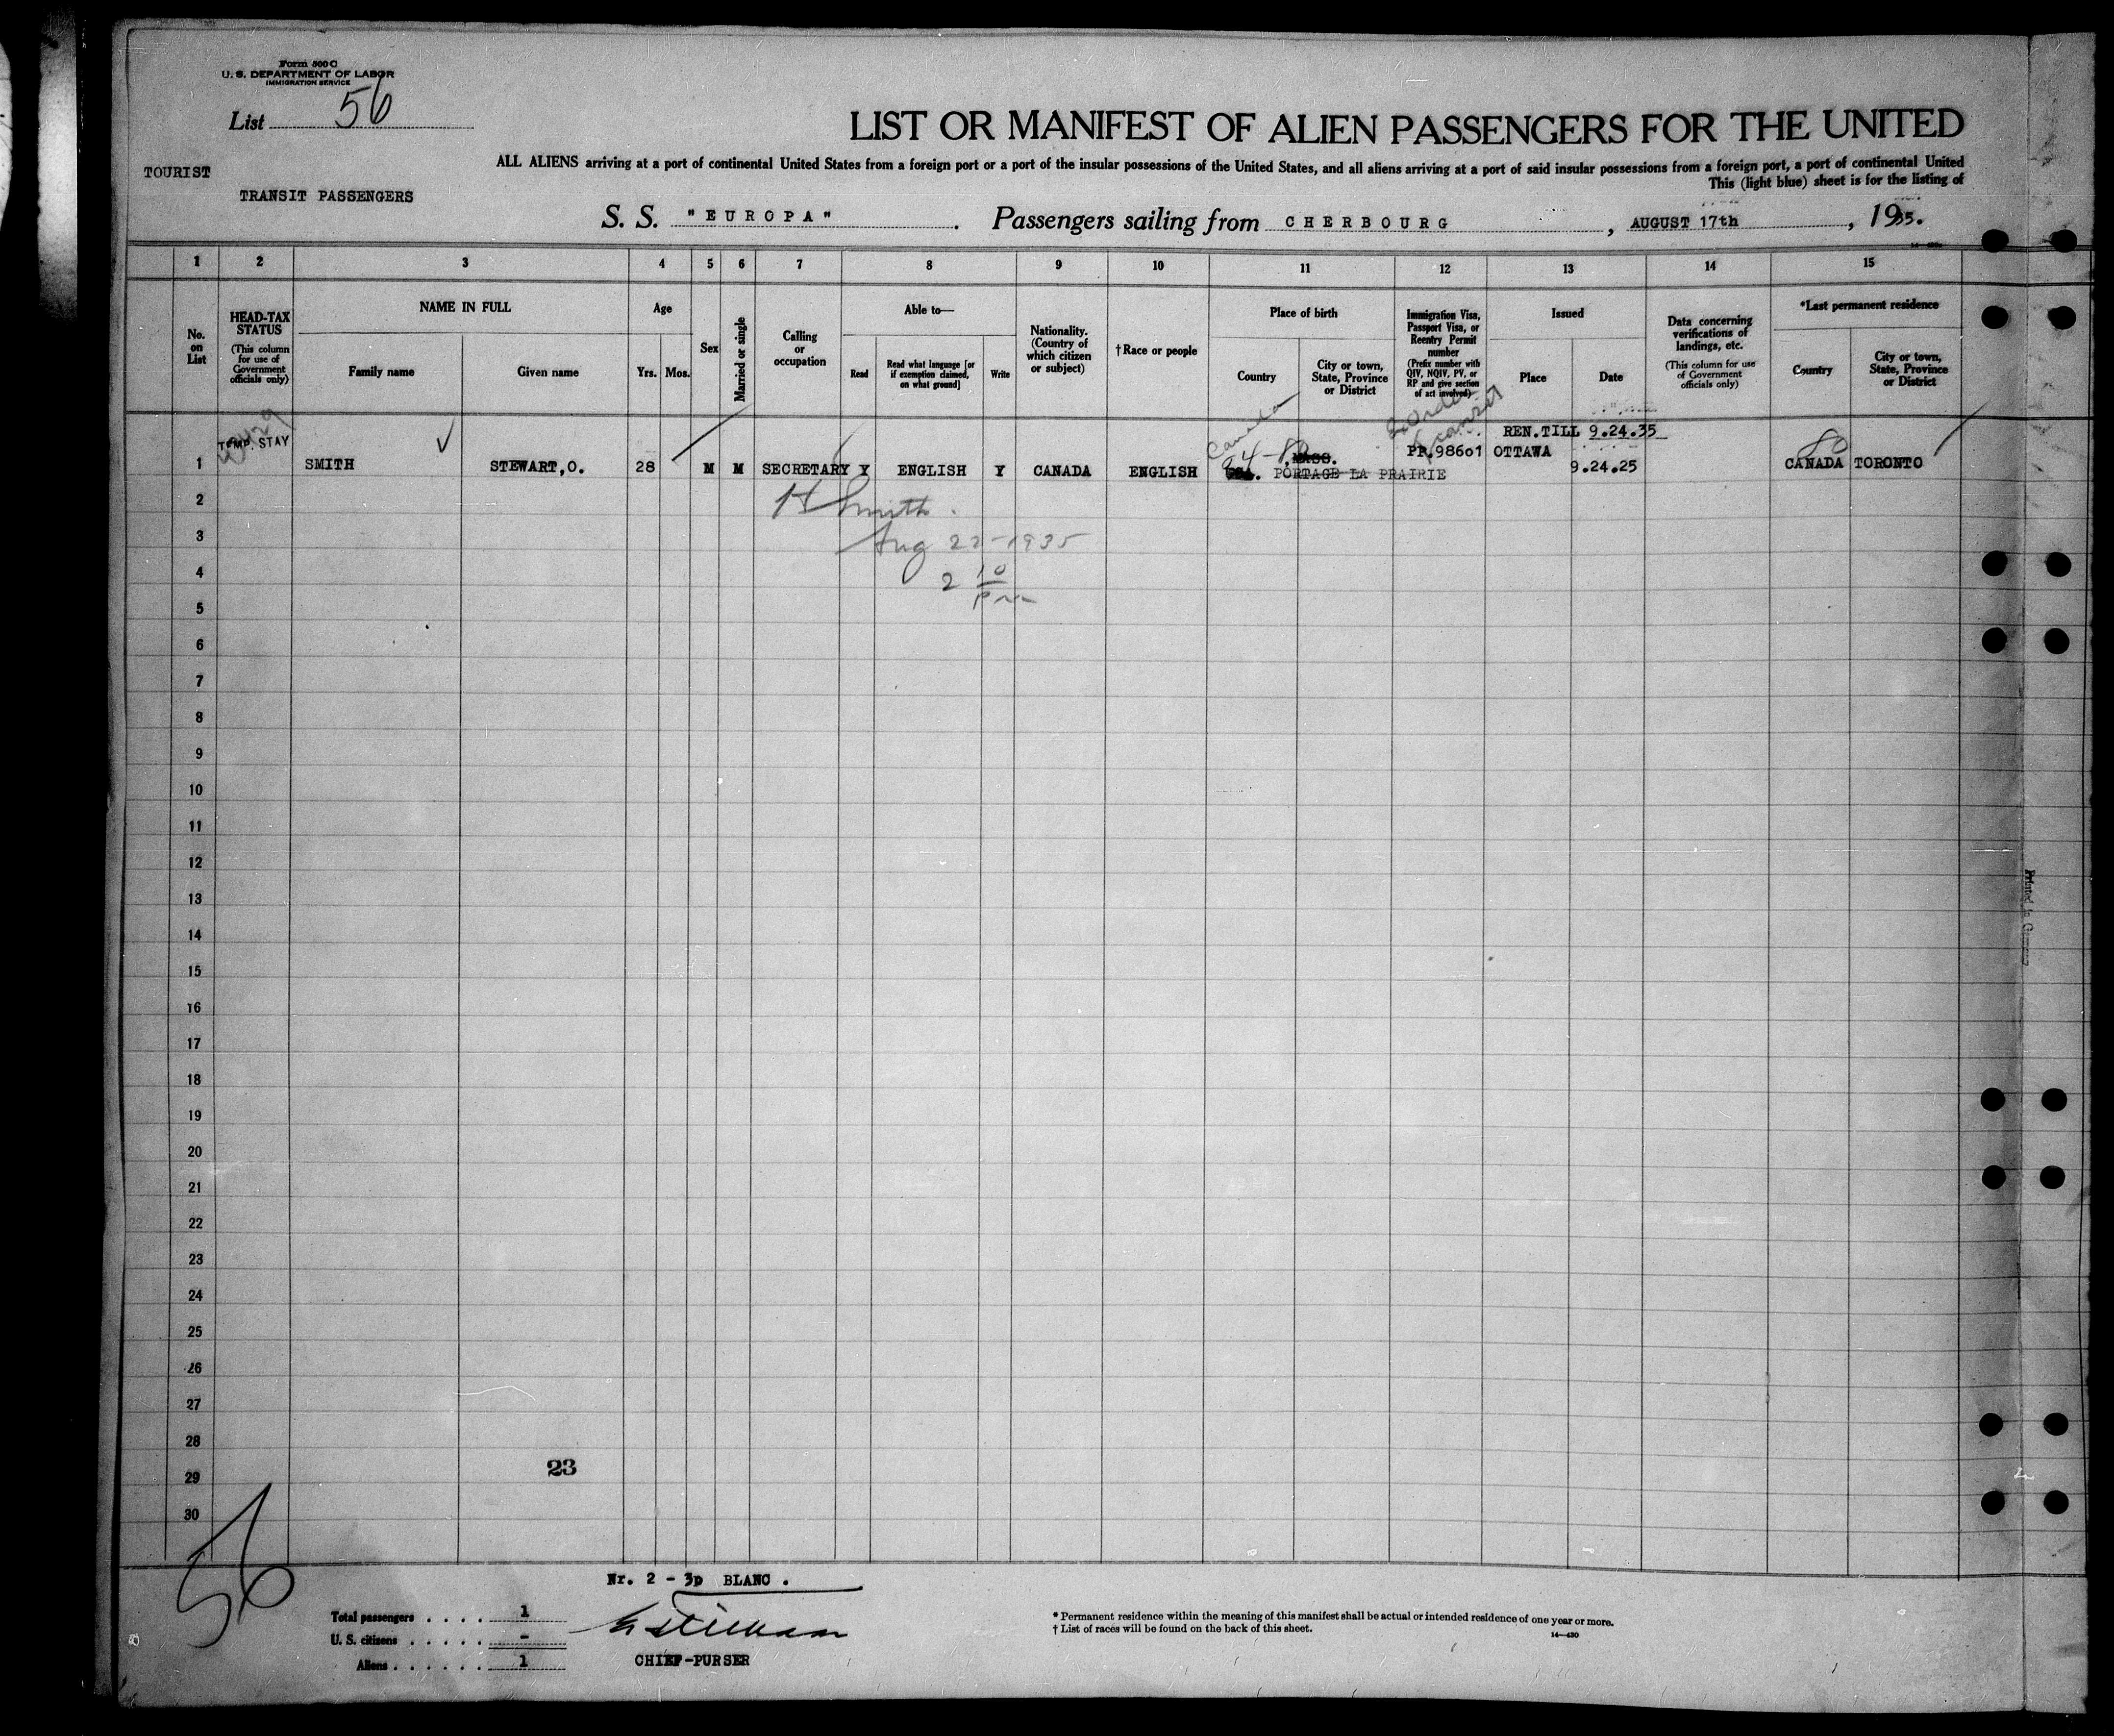 Form 500 C
U. S. DEPARTMENT OF LABOR
IMMIGRATION SERVICE
List 56
LIST OR MANIFEST OF ALIEN PASSENGERS FOR THE UNITED
ALL ALIENS arriving at a port of continental United States from a foreign port or a port of the insular possessions of the United States, and all aliens arriving at a port of said insular possessions from a foreign port, a port of continental United
TOURIST
This (light blue) sheet is for the listing of
TRANSIT PASSENGERS
S. S. "EUROPA". Passengers sailing from CHERBOURG, AUGUST 17th, 1935.
1 2 3 4 5 6 7 8 9 10 11 12 13 14 15
No. on List
HEAD-TAX STATUS (This column for use of Government officials only)
NAME IN FULL
Family name
Given name
Age
Yrs. Mos.
Sex
Married or single
Calling or occupation
Able to—
Read
Read what language [or if exemption claimed, on what ground]
Write
Nationality. (Country of which citizen or subject)
†Race or people
Place of birth
Country
City or town, State, Province or District
Immigration Visa, Passport Visa, or Reentry Permit number (Prefix number with QIV, NQIV, PV, or RP and give section of act involved)
Issued
Place
Date
Data concerning verifications of landings, etc. (This column for use of Government officials only)
*Last permanent residence
Country
City or town, State, Province or District
Canada
transit
TEMP. STAY
REN.TILL 9.24.35
80
1 SMITH STEWART,O. 28 M M SECRETARY Y ENGLISH Y CANADA ENGLISH PORTAGE LA PRAIRIE PP.98601 OTTAWA 9.24.25 CANADA TORONTO
MASS.
2
H Smith.
3
Aug 22-1935
4
2 10 pm
5
6
7
8
9
10
11
12
13
14
15
16
17
18
19
20
21
22
23
24
25
26
27
28
23
29
30
56
Nr. 2 - 3p BLANC .
Total passengers . . . . 1
U. S. citizens . . . . . -
Aliens . . . . . . 1
CHIEF-PURSER
* Permanent residence within the meaning of this manifest shall be actual or intended residence of one year or more.
† List of races will be found on the back of this sheet.
14—430
Printed in Germany